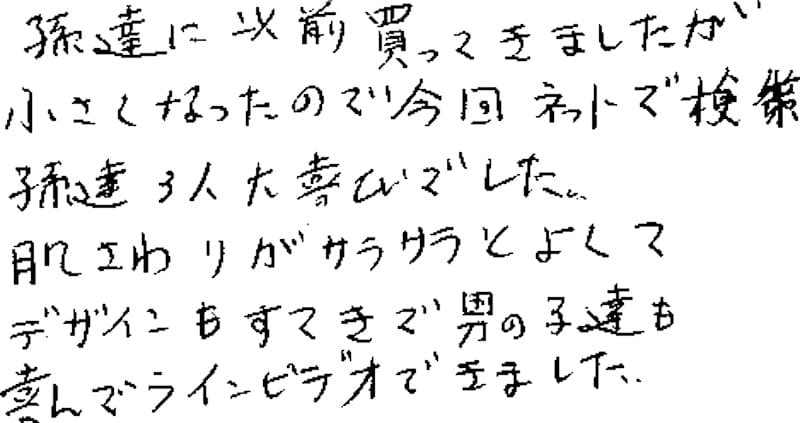 孫達に以前買ってきましたが
小さくなったので今回ネットで検索
孫達3人大喜びでした。
肌さわりがサラサラとよくて
デザインもすてきで男の子達も
喜んでラインビデオできました。